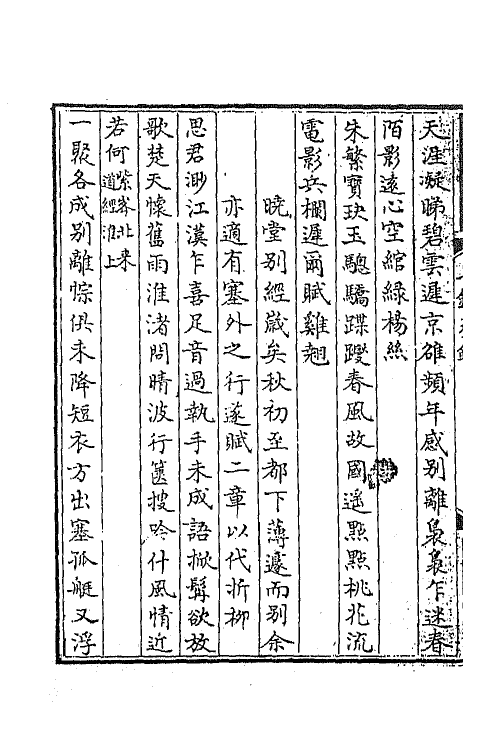 天涯凝睇碧雲遲京雒頻年感别離裊裊乍迷春
陌影遠心空綰綠楊絲
朱繁寶玦玉驄驕蹀躞春風故國遥點點桃花流
電影兵欄遲爾賦雞翹
曉堂别經嵗矣秋初至都下薄遽而别余
亦適有塞外之行遂賦二章以代折柳
思君渺江漢乍喜足音過執手未成語掀髯欲放
歌楚天懷舊雨淮渚問晴波行篋搜吟什風情近
若何紫峯北来道經淮上
一聚各成别離悰俱未降短衣方出塞孤艇又浮